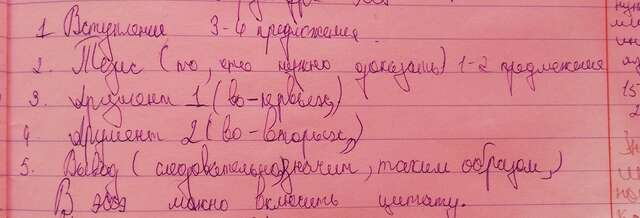 1 Вступление 3-4 предложения.
2. Тезис (то, что нужно доказать) 1-2 предложения
3. Аргумент 1 (во-первых,)
4 Аргумент 2 (во-вторых,)
5. Вывод (следовательно, значит, таким образом,)
В эссе можно включить цитату.